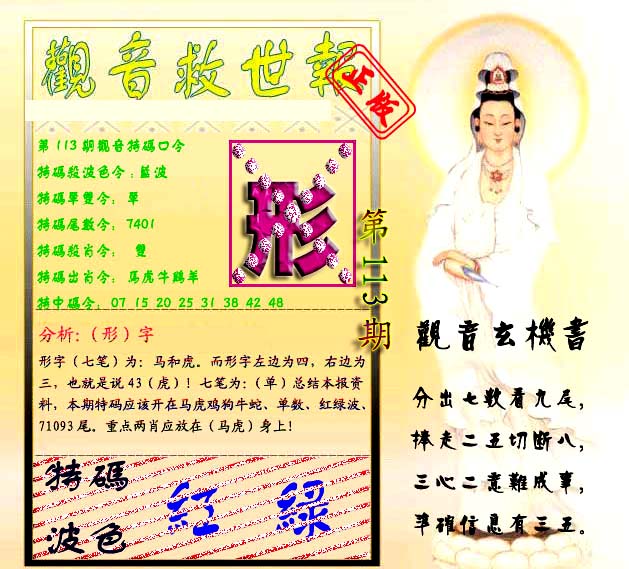 觀音救世報
第113期觀音特碼口令
特碼殺波色令:藍波
特碼單雙令: 單
特碼尾數令: 7401
特碼殺肖令: 雙
特碼出肖令: 馬虎牛鷄羊
特中碼令: 07 15 20 25 31 38 42 48
形
第113期
分析:(形)字
形字(七笔)为:马和虎。而形字左边为四,右边为
三,也就是说43(虎)!七笔为:(单)总结本报资
料,本期特码应该开在马虎鸡狗牛蛇、单数、红绿波、
71093尾。重点两肖应放在(马虎)身上!
特碼
波色
紅 綠
觀音玄機書
分出七數看九尾,
捧走二五切断八,
三心二意難成事,
準確信息有三五。